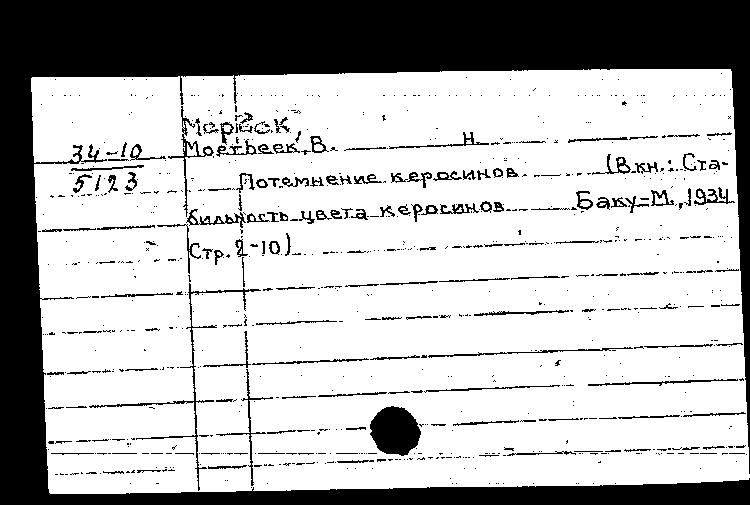 34-10
5123
Мербек,
Моербеек, В. Н.
Потемнение керосинов (В кн.: Ста-
бильность цвета керосинов Баку-М., 1934
Стр. 2-10)